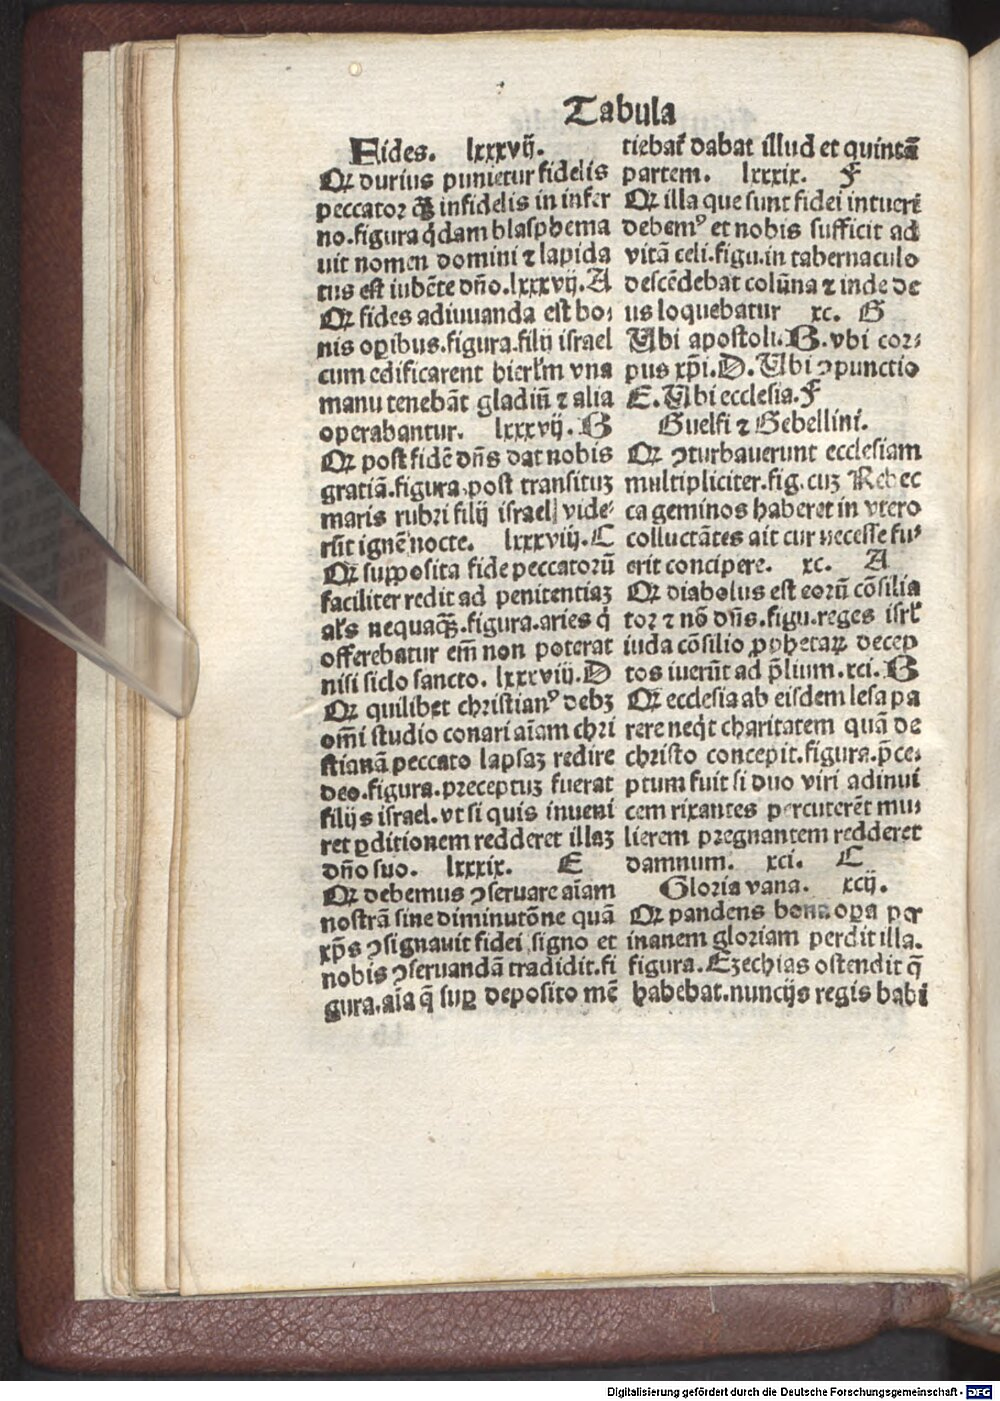 Tabula
Fides. lxxxvij.
Qꝛ durius punietur fidelis
peccatoꝛ q̃ꝫ infidelis in infer
no.figura q̇dam blasphema
uit nomen domini ⁊ lapida
tus est iubẽte dño.lxxxvij.A
Qꝛ fides adiuuanda est bo⸗
nis oꝑibus.figura.filij israel
cum edificarent hierl̃m vna
manu tenebãt gladiũ ⁊ alia
operabantur. lxxxvij.B
Qꝛ post fidẽ dñs dat nobis
gratiã.figura.post transituꝫ
maris rubꝛi filij israel vide⸗
rũt ignẽ nocte. lxxxviij.C
Qꝛ supposita fide peccatoꝛũ
faciliter redit ad penitentiaꝫ
al's nequaq̃ꝫ.figura.aries q̇
offerebatur em̃ non poterat
nisi siclo sancto. lxxxviij.D
Qꝛ quilibet chꝛistianꝰ debꝫ
om̃i studio conari aĩam chꝛi
stianã peccato lapsaꝫ redire
deo.figura.preceptuꝫ fuerat
filijs israel.vt si quis inueni
ret ꝑditionem redderet illaꝫ
dño suo. lxxxix. E
Qꝛ debemus ꝯseruare aĩam
nostrã sine diminutõne quã
xp̃s ꝯsignauit fidei signo et
nobis ꝯseruandã tradidit.fi
gura.aĩa q̃ suꝑ deposito mẽ
tiebat̃ dabat illud et quintã
partem. lxxxix. F
Qꝛ illa que sunt fidei intueri
debemꝰ et nobis sufficit ad
vitã celi.figu.in tabernaculo
descẽdebat colũna ⁊ inde de
us loquebatur xc. G
Ubi apostoli.B.vbi coꝛ⸗
pus xp̃i.D.Ubi ꝯpunctio
E.Ubi ecclesia.F
Guelfi ⁊ Gebellini.
Qꝛ ꝯturbauerunt ecclesiam
multipliciter.fig.cuꝫ Rebec
ca geminos haberet in vtero
colluctãtes ait cur necesse fu⸗
erit concipere. xc. A
Qꝛ diabolus est eoꝛũ cõsilia
toꝛ ⁊ nõ dñs.figu.reges isrl̃
iuda cõsilio ꝓphetaꝝ decep
tos iuerũt ad p̃lium.xci.B
Qꝛ ecclesia ab eisdem lesa pa
rere neq̇t charitatem quã de
chꝛisto concepit.figura.p̃ce⸗
ptum fuit si duo viri adinui
cem rixantes percuterẽt mu⸗
lierem pꝛegnantem redderet
damnum. xci. C
Gloꝛia vana. xcij.
Qꝛ pandens bona oꝑa per
inanem gloꝛiam perdit illa.
figura.Ezechias ostendit q̃
habebat.nuncijs regis babi
Digitalisierung gefördert durch die Deutsche Forschungsgemeinschaft - DFG